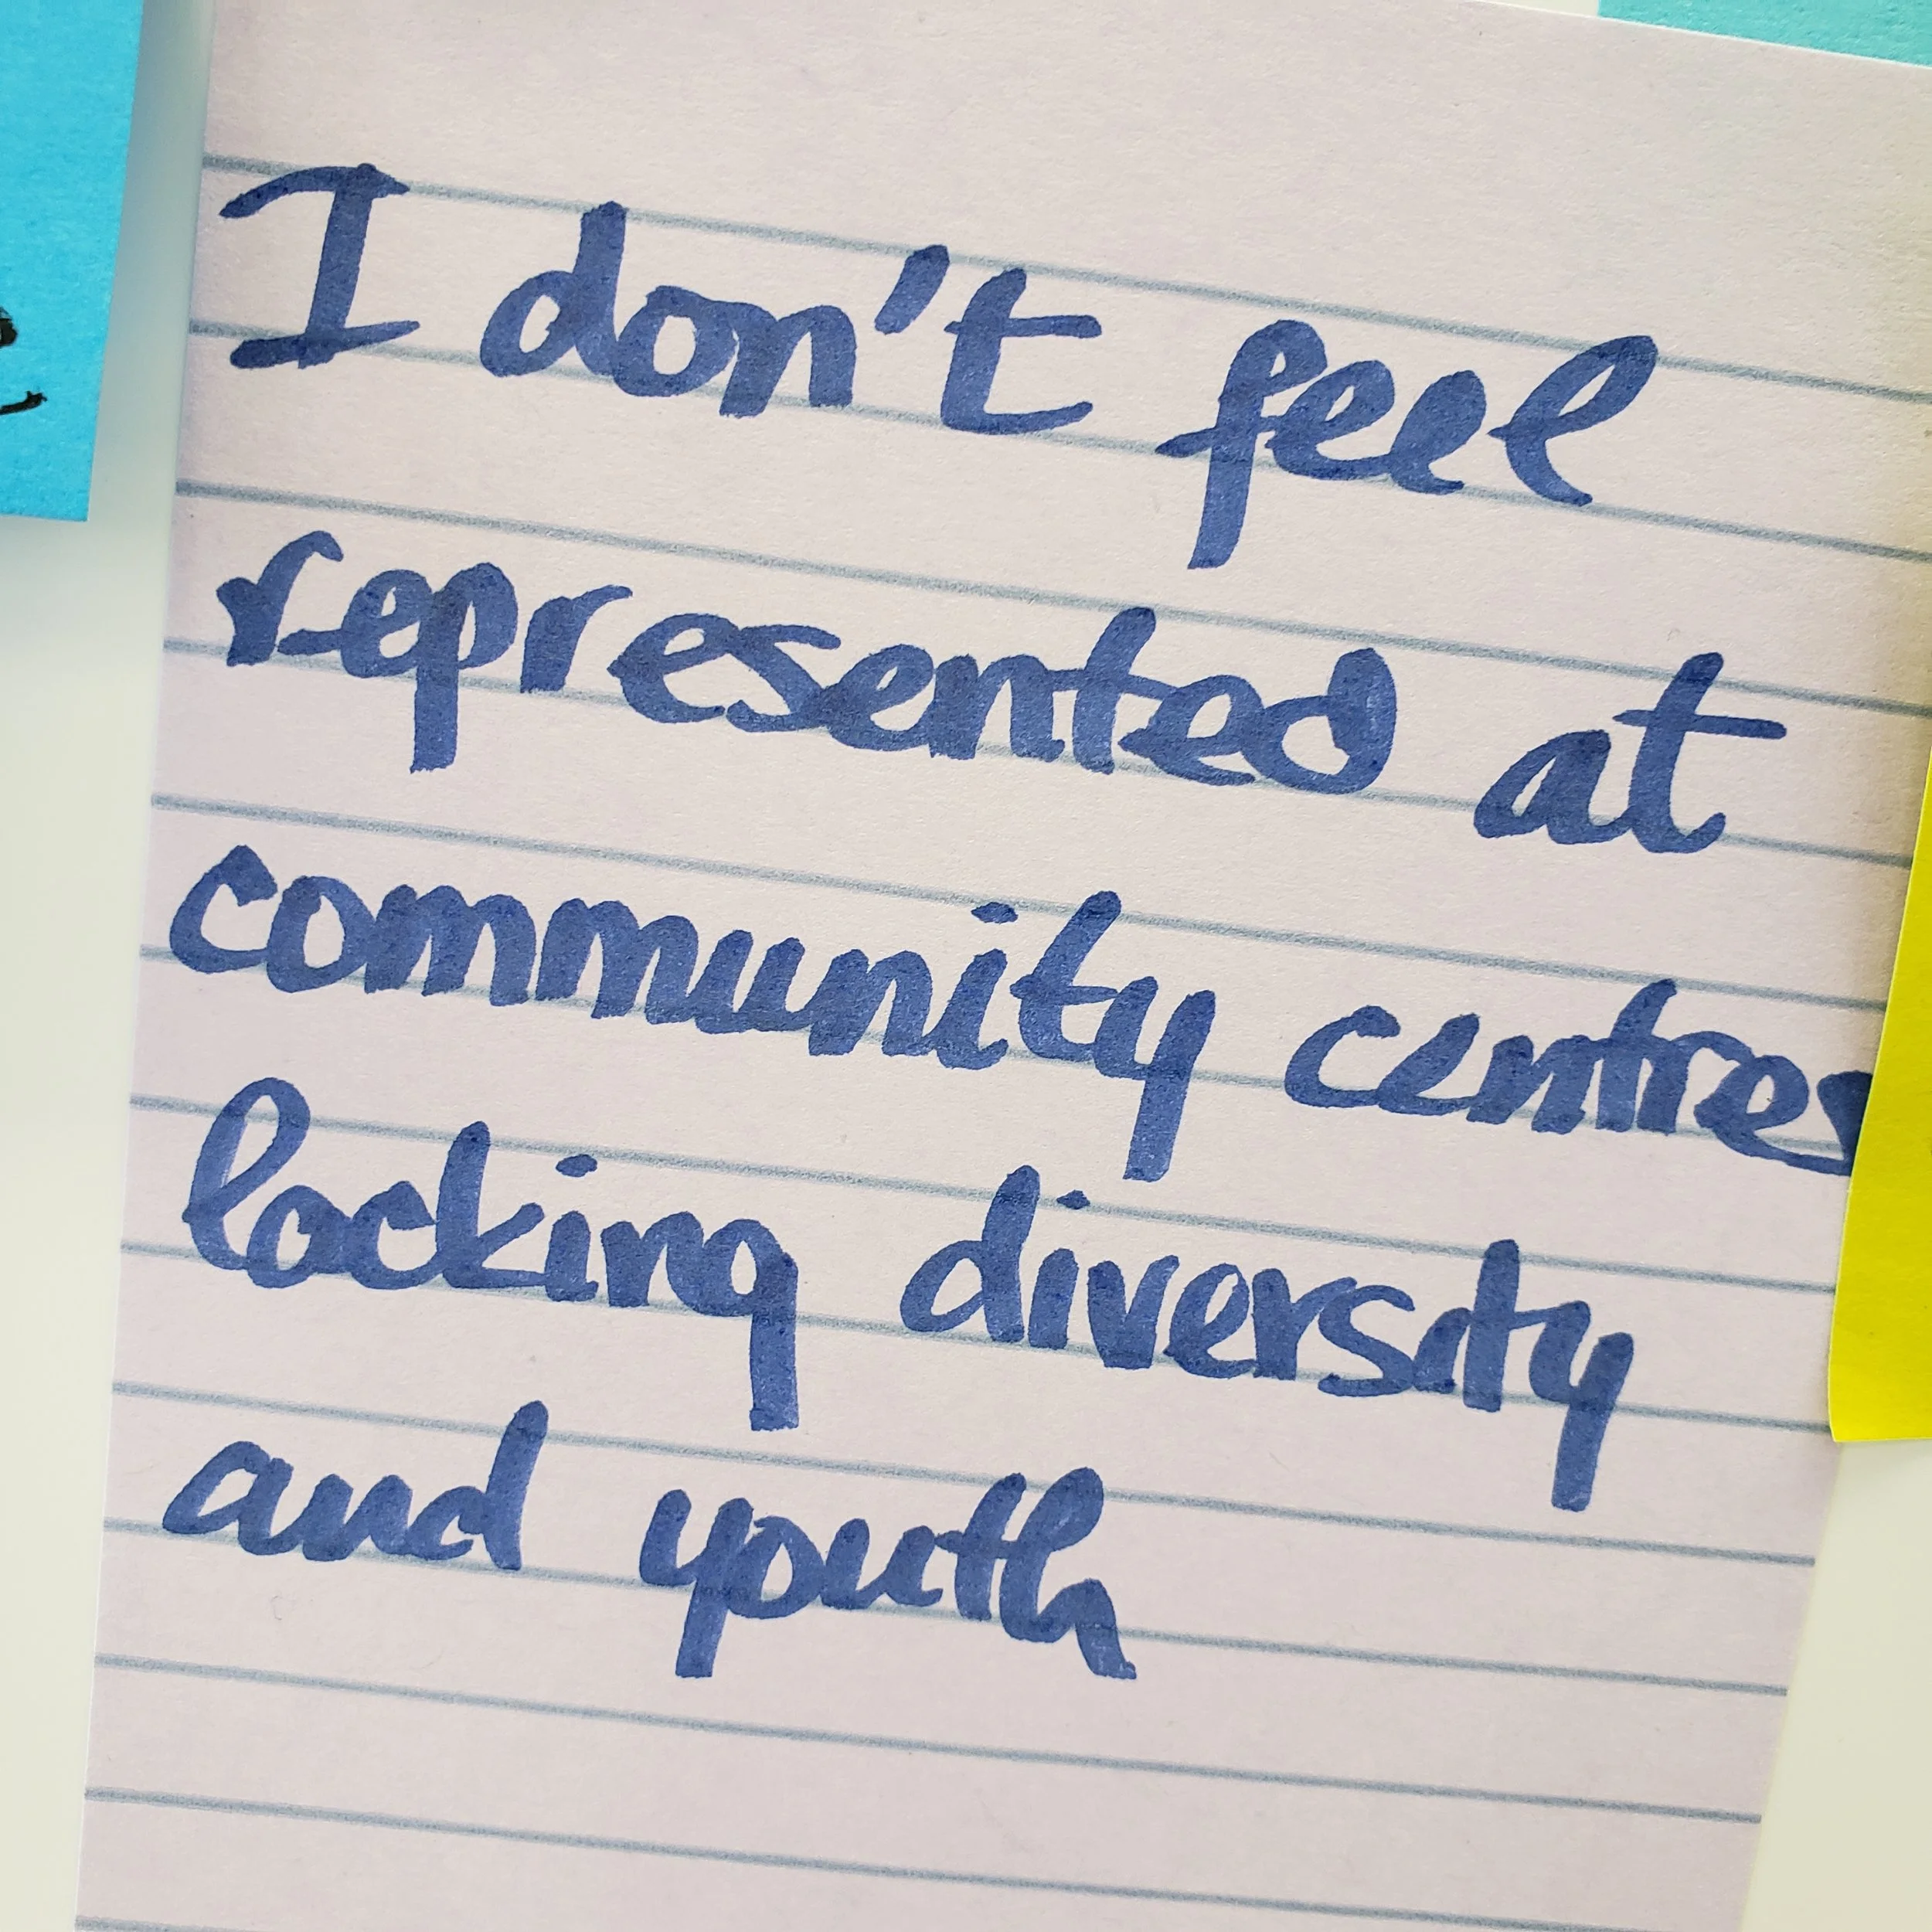 I don't feel
represented at
community centres
lacking diversity
and youth